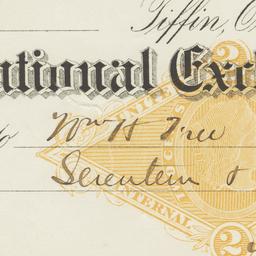 Tiffin, O
ational Exch
to Wm H Free
Seventeen &
UNITED
INTERNAL
2
2
CENTS